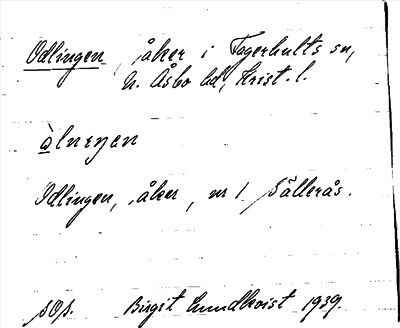 Odlingen, åker i Fagerhults sn,
N. Åsbo hd, Krist. l.
òlnɩŋen
Odlingen, åker, nr 1 Sällerås.
SOS. Birgit Lundkvist 1939.